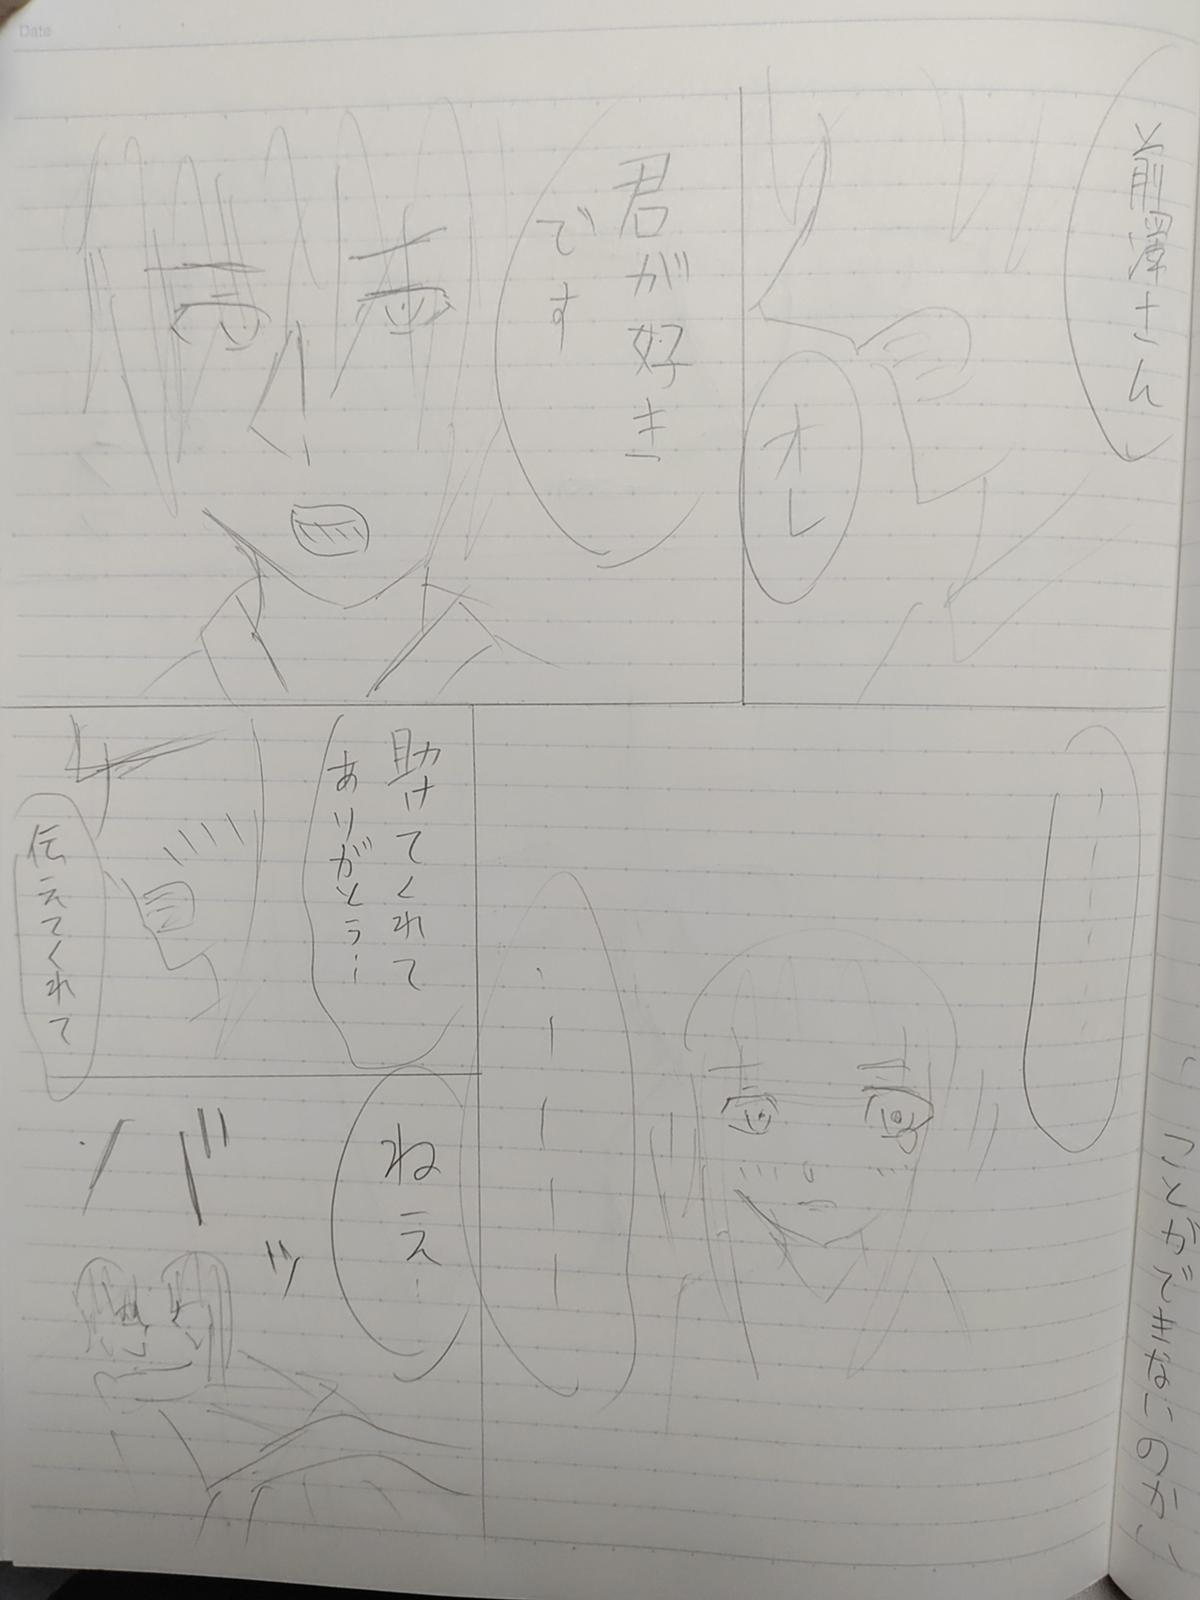 Date
前澤さん
オレ
君が好き
です
助けてくれて
ありがとう…
伝えてくれて
ねえ…
バッ
ことができないのか